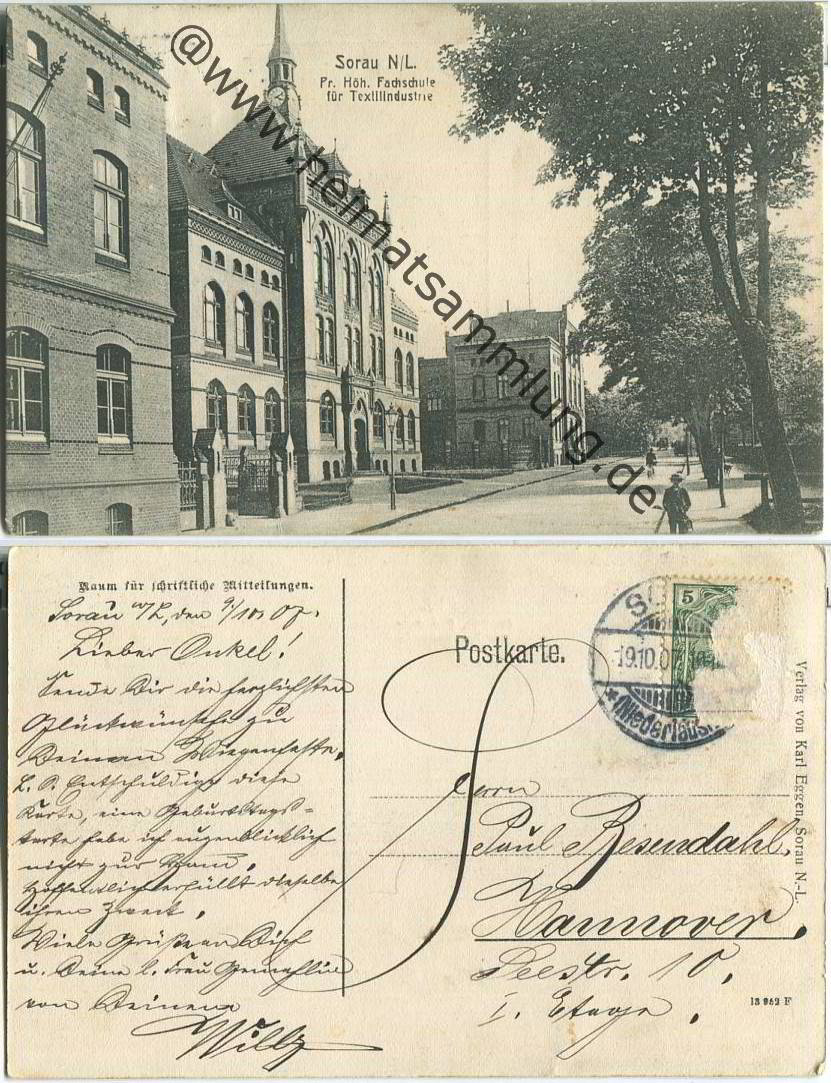 Sorau N/L.
Pr. Höh. Fachschule
für Textilindustrie
@www.heimatsammlung.de
Raum für schriftliche Mitteilungen.
Sorau N/L, den 9/10 07.
Lieber Onkel!
Sende Dir die herzlichsten
Glückwünsche zu
Deinem Wiegenfeste.
Entschuldige diese
Karte, eine Geburtstags=
karte habe ich augenblicklich
nicht zur Hand.
Hoffentlich erfüllt dieselbe
ihren Zweck.
Viele Grüße an Dich
u. Deine l. Frau Gemahlin
von Deinem
Willy
Postkarte.
5
19.10.07
*(Niederlaus.
Herrn
Paul Rosendahl,
Hannover.
Seestr. 10.
I. Etage.
Verlag von Karl Eggen, Sorau N.-L.
13 962 F